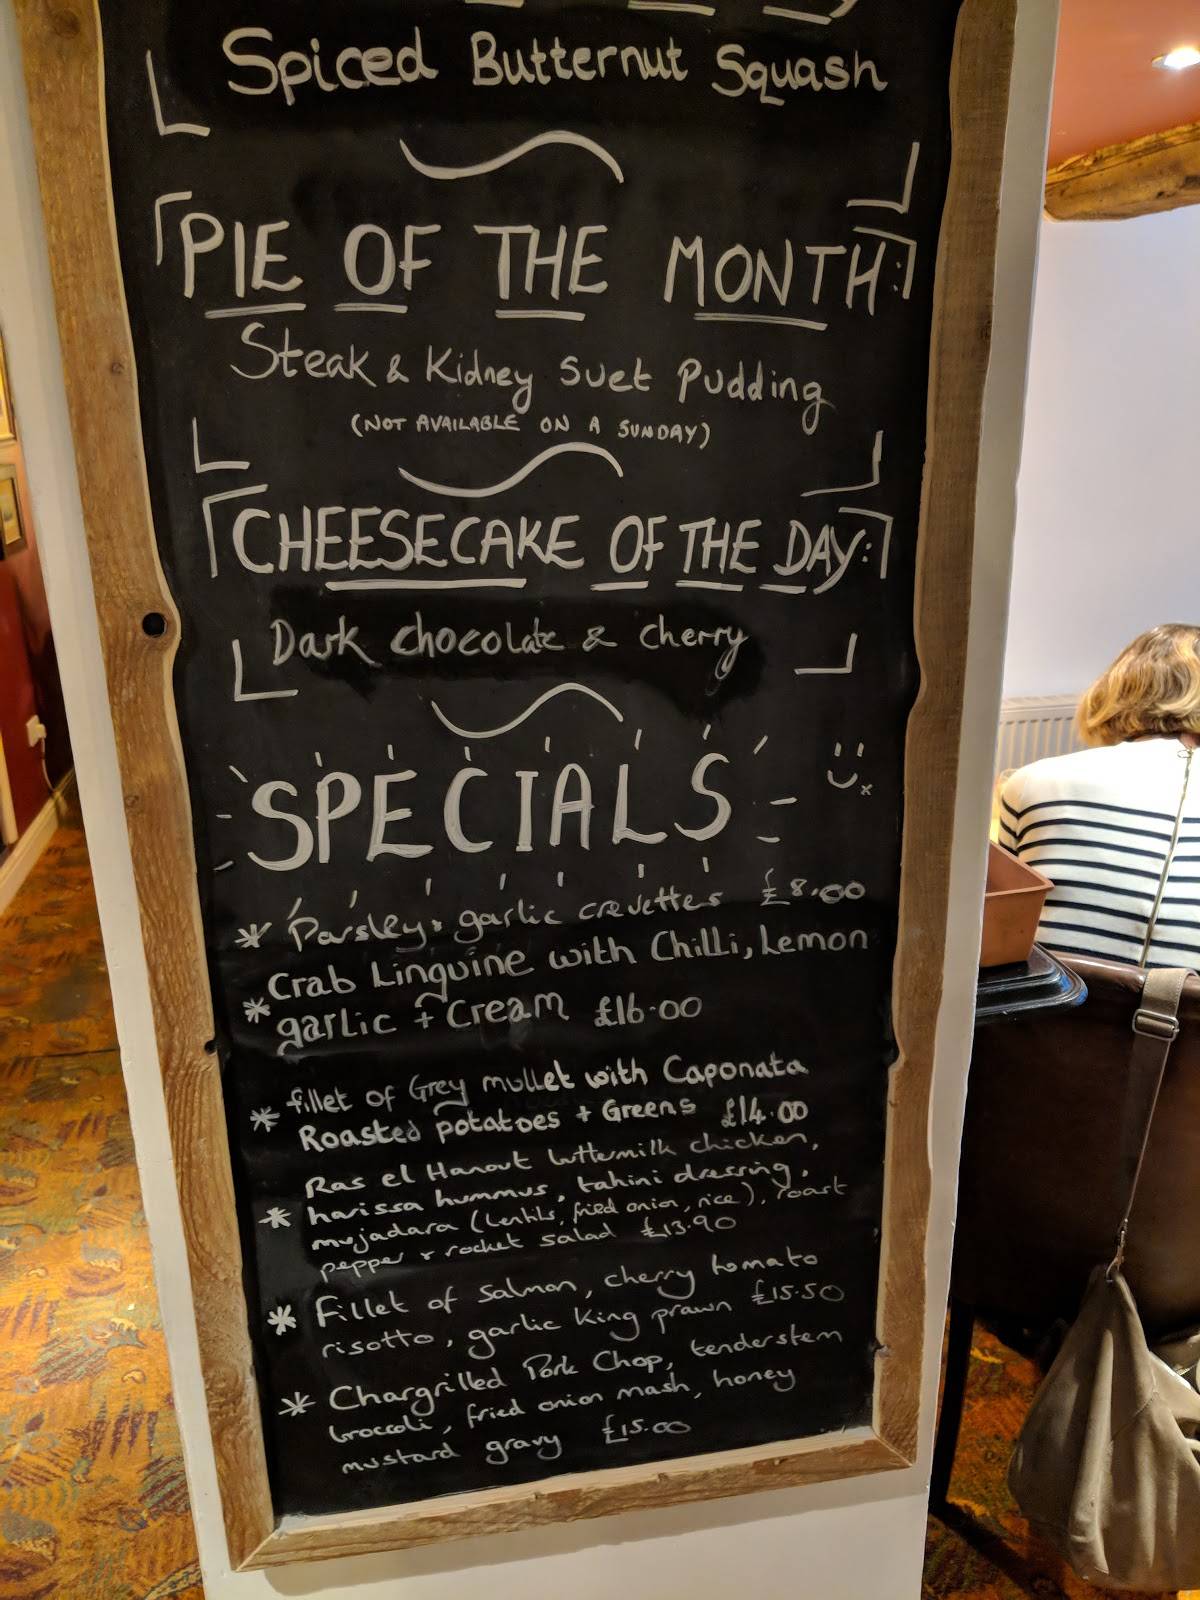 Spiced Butternut Squash
PIE OF THE MONTH:
Steak & Kidney Suet Pudding
(NOT AVAILABLE ON A SUNDAY)
CHEESECAKE OF THE DAY:
Dark chocolate & cherry
SPECIALS
* Parsley & garlic crevettes £8.00
Crab Linguine with Chilli, Lemon
* garlic + Cream £16.00
fillet of Grey mullet with Caponata
* Roasted potatoes + Greens £14.00
Ras el Hanout buttermilk chicken,
* harissa hummus, tahini dressing,
mujadara (lentils, fried onion, rice), roast
pepper + rocket salad £13.90
* Fillet of salmon, cherry tomato
risotto, garlic King prawn £15.50
* Chargrilled Pork Chop, tenderstem
broccoli, fried onion mash, honey
mustard gravy £15.00